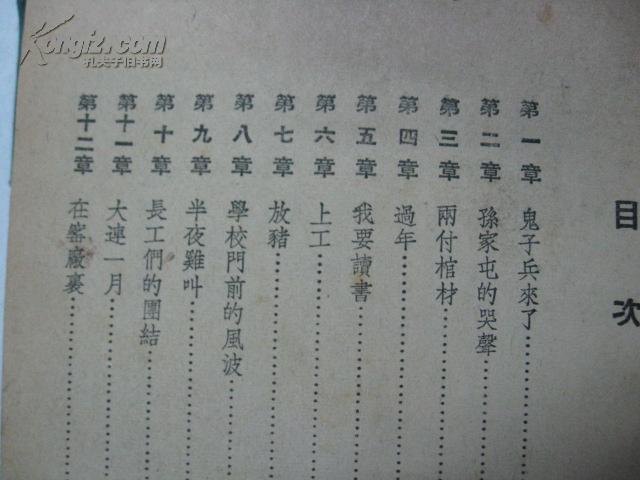 Kongfz.com
孔夫子旧书网
目次
第一章 鬼子兵來了
第二章 孫家屯的哭聲
第三章 兩付棺材
第四章 過年
第五章 我要讀書
第六章 上工
第七章 放豬
第八章 學校門前的風波
第九章 半夜雞叫
第十章 長工們的團結
第十一章 大連一月
第十二章 在窰廠裏